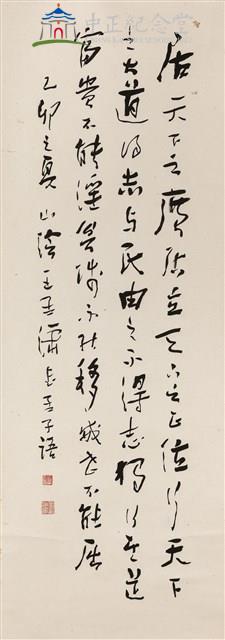 中正紀念堂
居天下之廣居立天下之正位行天下
之大道得志与民由之不得志獨行其道
富貴不能淫貧賤不能移威武不能屈
乙卯之夏山陰王孟瀟書孟子語